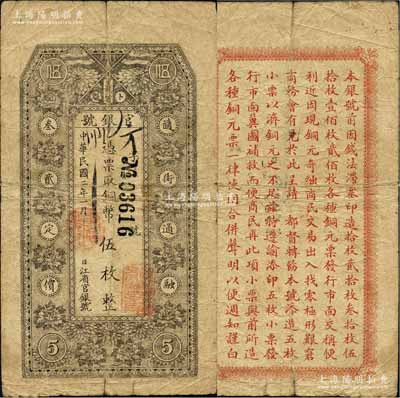 上海陽明拍賣
伍
伍
隨街通融
叁貳定價
憑票取銅幣伍枚整
№03616
中華民國
江省官銀號
5
5
本銀號前因錢法滯塞印造拾枚貳拾枚叁拾枚伍
拾枚壹佰枚貳佰枚各種銅元票發行市面交稱便
利近因現銅元奇絀商民交易出入找零極形艱窘
商務會有見於此呈請
都督轉飭本號添造五枚
小票以濟銅元之不足
特造添印五枚小票發
行市面
商民再此項小票與前所造
各種銅元票一律使用合併聲明以便週知謹白
上海陽明拍賣